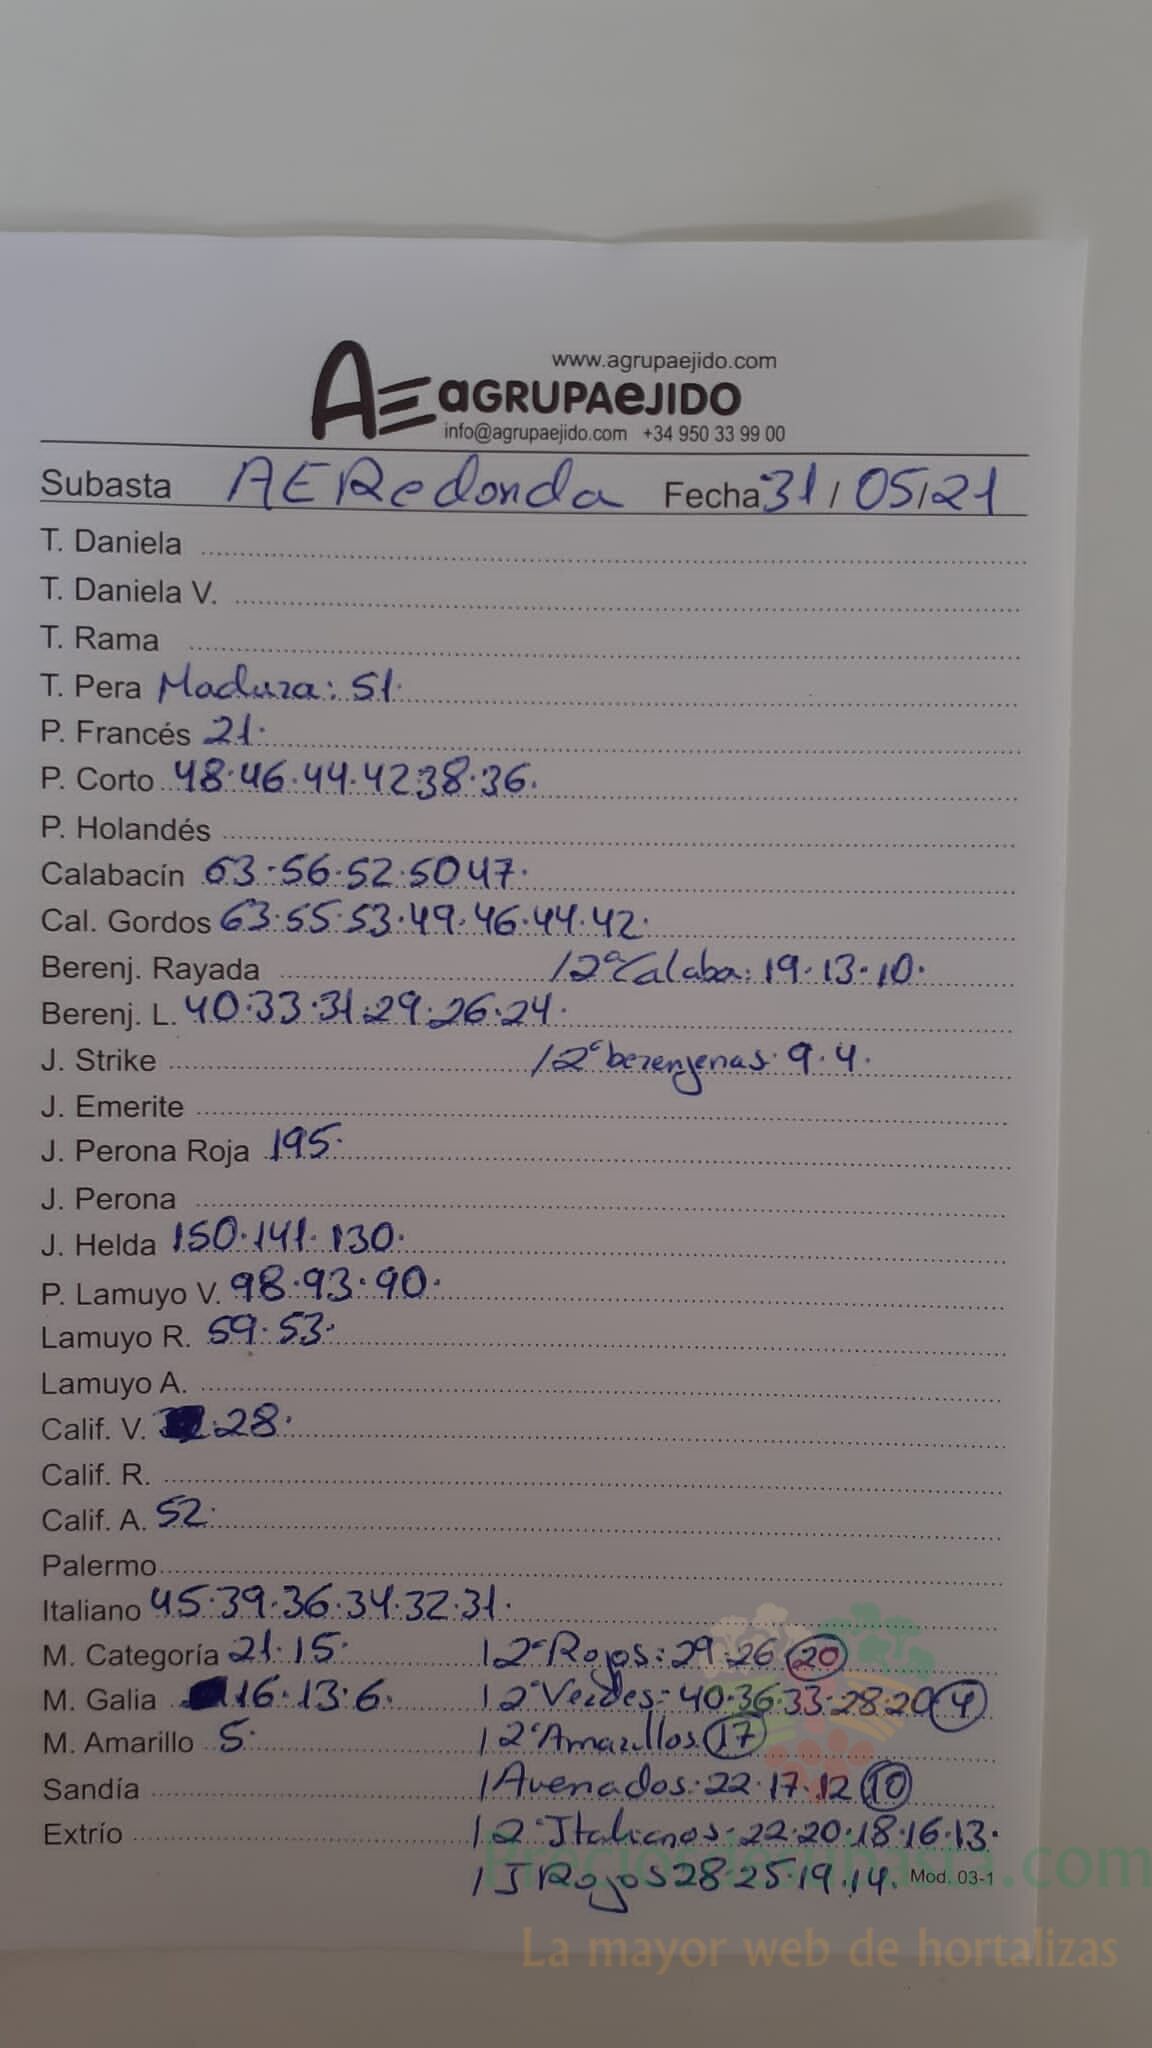 www.agrupaejido.com
AE aGRUPAeJIDO
info@agrupaejido.com +34 950 33 99 00
Subasta AERedonda Fecha 31/05/21
T. Daniela
T. Daniela V.
T. Rama
T. Pera Madura: 51.
P. Francés 21.
P. Corto 48.46.44.42 38.36.
P. Holandés
Calabacín 63.56.52.50 47.
Cal. Gordos 63.55.53.49.46.44.42.
Berenj. Rayada /2ª Calaba: 19.13.10.
Berenj. L. 40.33.31.29.26.24.
J. Strike /2ª berenjenas. 9.4.
J. Emerite
J. Perona Roja 195.
J. Perona
J. Helda 150.141.130.
P. Lamuyo V. 98.93.90.
Lamuyo R. 59.53.
Lamuyo A.
Calif. V. 28.
Calif. R.
Calif. A. 52.
Palermo
Italiano 45.39.36.34.32.31.
M. Categoría 21.15. /2ª Rojos: 29.26 20
M. Galia 16.13.6. /2ª Verdes: 40.36.33.28.20 4
M. Amarillo 5. /2ª Amarillos. 17
Sandía /Avenados: 22.17.12 10
Extrío /2ª Italianos: 22.20.18.16.13.
/J Rojos 28.25.19.14. Mod. 03-1
Preciosdesubasta.com
La mayor web de hortalizas